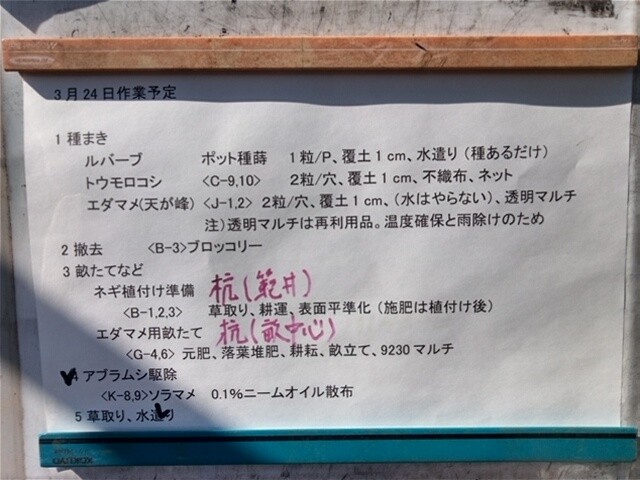 3月24日作業予定
1 種まき
ルバーブ ポット種蒔 1粒/P、覆土1cm、水遣り(種あるだけ)
トウモロコシ <C-9,10> 2粒/穴、覆土1cm、不織布、ネット
エダマメ(天が峰) <J-1,2> 2粒/穴、覆土1cm、(水はやらない)、透明マルチ
注)透明マルチは再利用品。温度確保と雨除けのため
2 撤去 <B-3>ブロッコリー
3 畝たてなど
ネギ植付け準備 杭(範囲)
<B-1,2,3> 草取り、耕運、表面平準化(施肥は植付け後)
エダマメ用畝たて 杭(畝中心)
<G-4,6> 元肥、落葉堆肥、耕耘、畝立て、9230マルチ
4 アブラムシ駆除
<K-8,9>ソラマメ 0.1%ニームオイル散布
5 草取り、水遣り